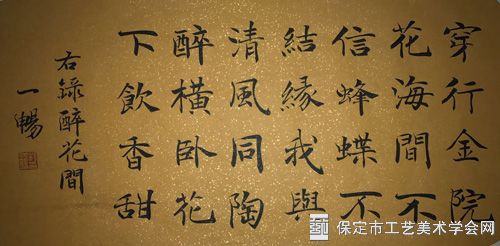 穿行金院
花海間不
信蜂蝶不
結緣我與
清風同陶
醉橫臥花
下飲香甜
右錄醉花間
一暢
保定市工艺美术学会网